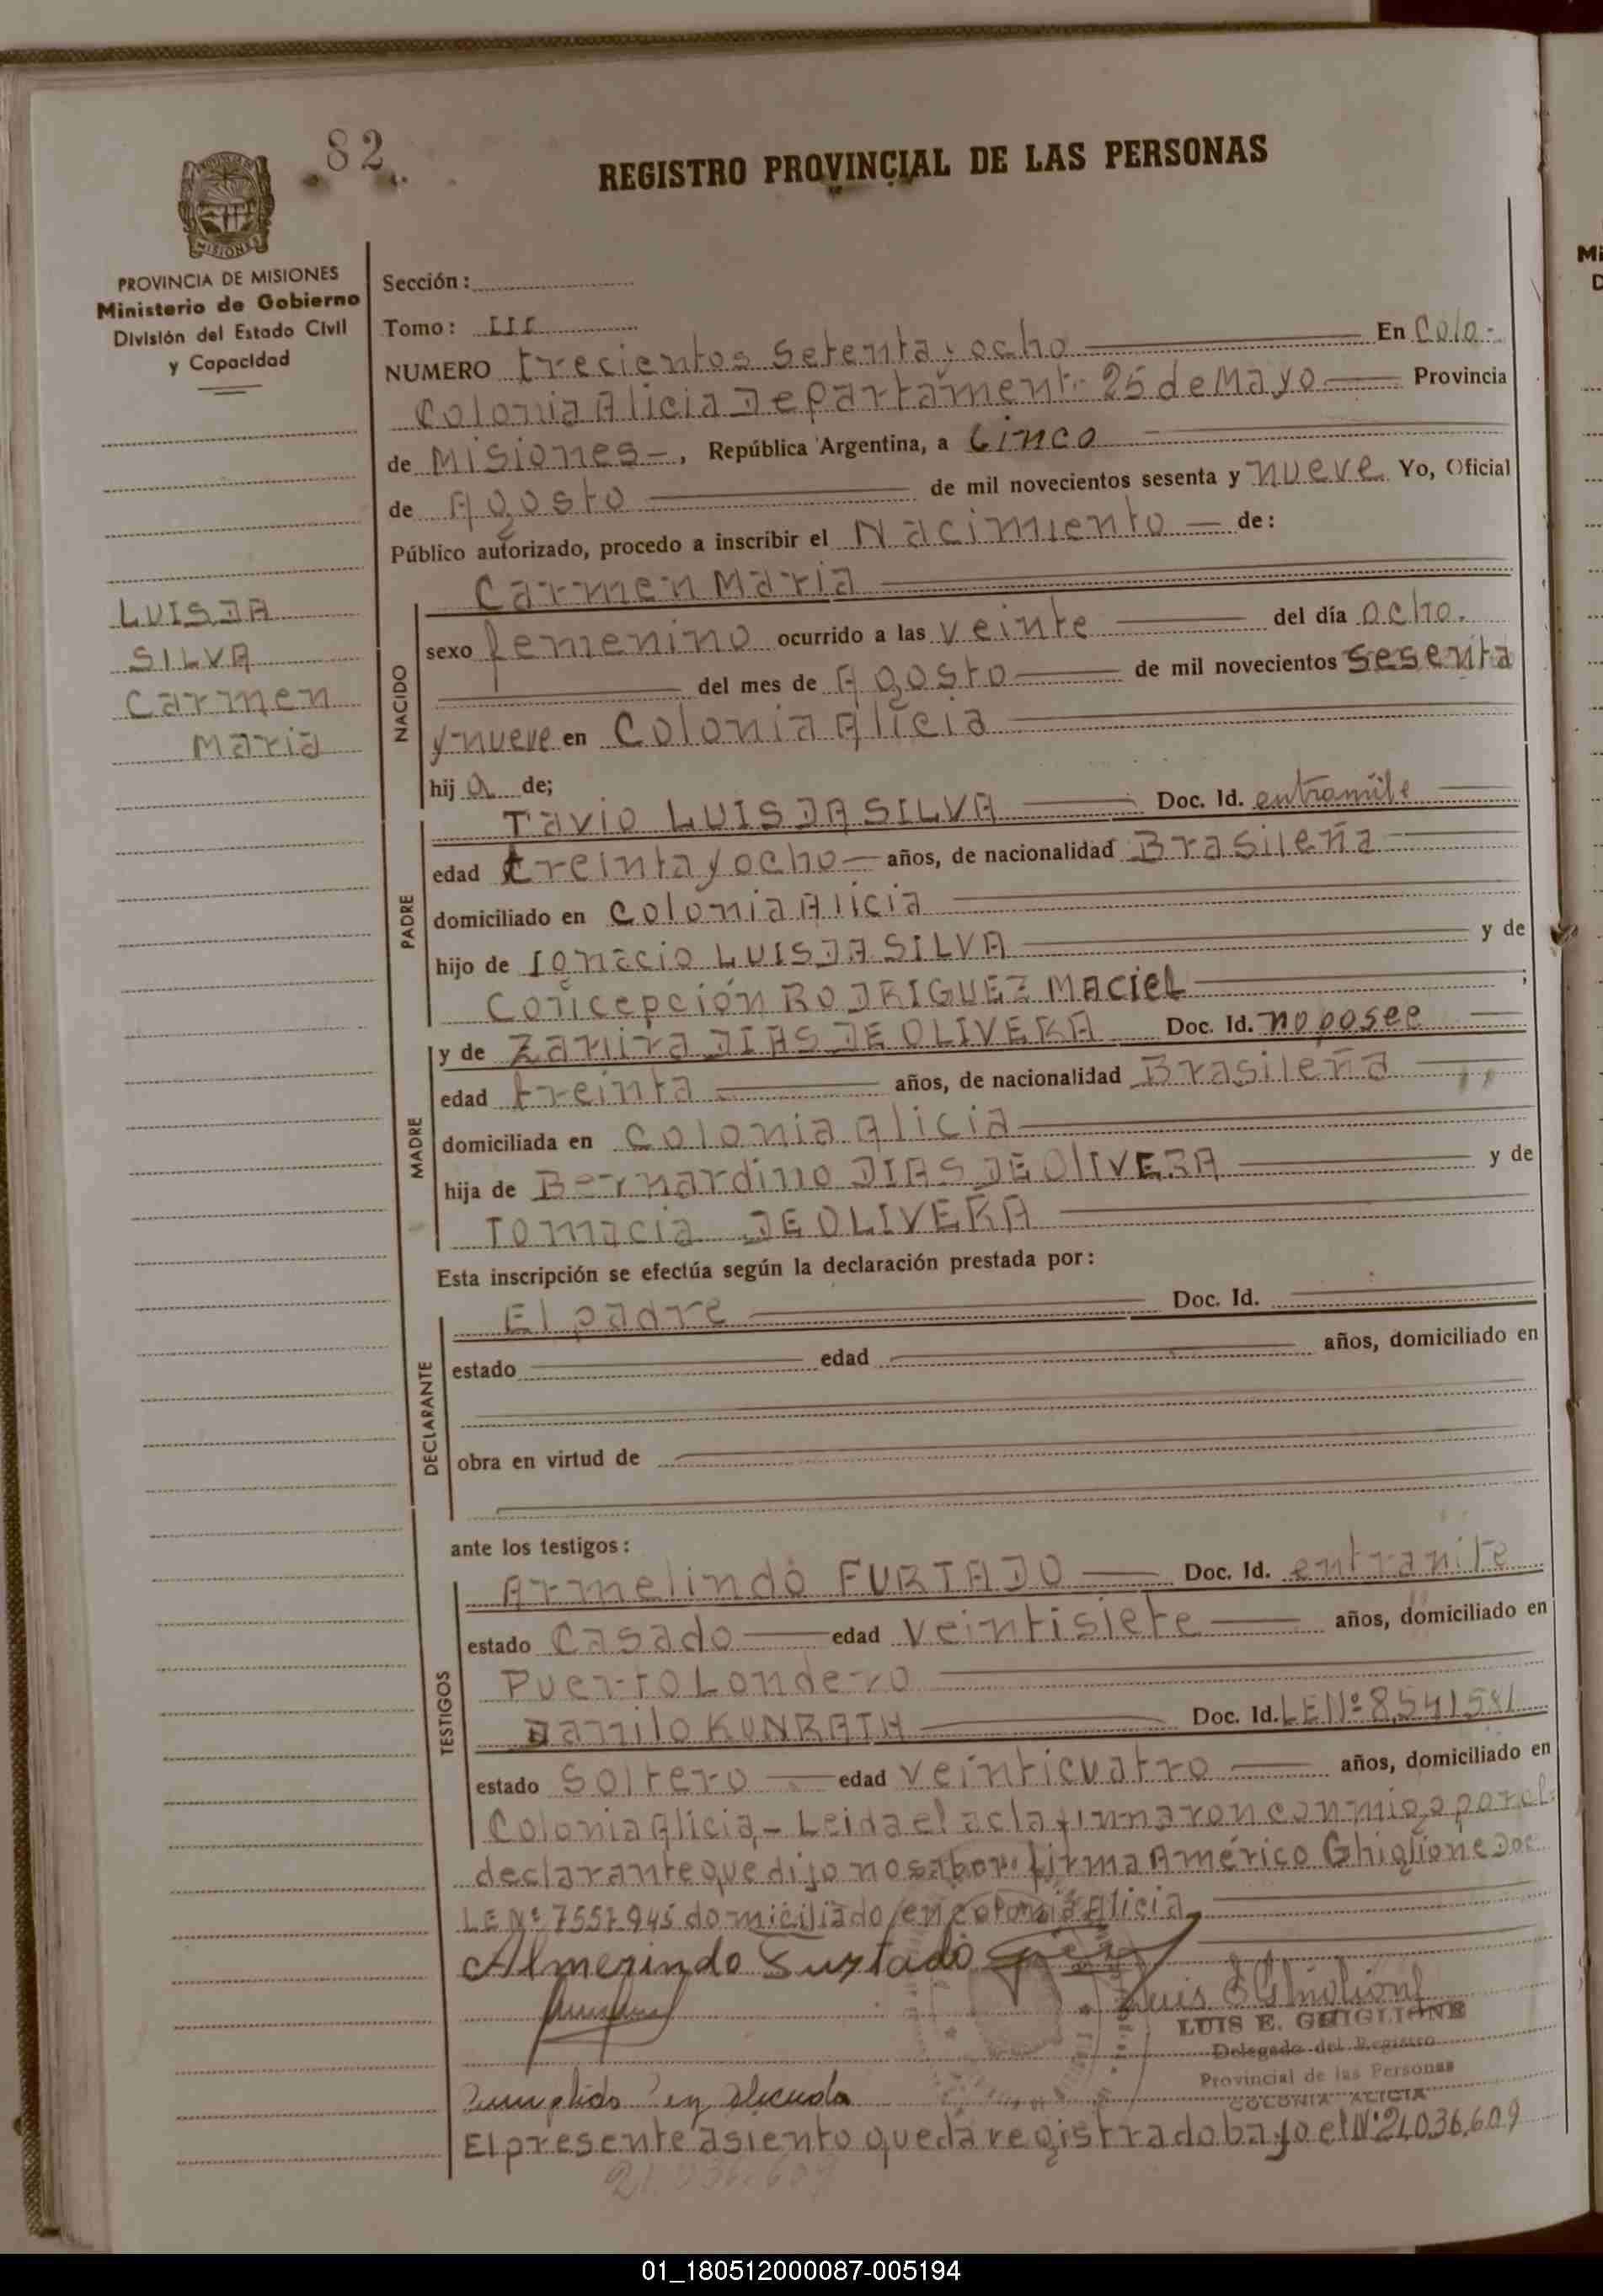 82
REGISTRO PROVINCIAL DE LAS PERSONAS
MISIONES
PROVINCIA DE MISIONES
Ministerio de Gobierno
División del Estado Civil
y Capacidad
LUIS DA
SILVA
Carmen
Maria
Sección:
Tomo: III
NUMERO trecientos setenta y ocho En Colo-
Colonia Alicia Departament. 25 de Mayo Provincia
de Misiones-, República Argentina, a Cinco
de Agosto de mil novecientos sesenta y nueve Yo, Oficial
Público autorizado, procedo a inscribir el Nacimiento de:
NACIDO
Carmen Maria
sexo femenino ocurrido a las veinte del día ocho.
del mes de Agosto de mil novecientos sesenta
y nueve en Colonia Alicia
hij a de;
PADRE
Tavio LUIS DA SILVA Doc. Id. entramite
edad treinta y ocho años, de nacionalidad Brasileña
domiciliado en Colonia Alicia
hijo de Ignacio LUIS DA SILVA y de
Concepción RODRIGUEZ MACIEL ;
MADRE
y de DIAS DE OLIVERA Doc. Id. no posee
edad treinta años, de nacionalidad Brasileña
domiciliada en Colonia Alicia
hija de Bernardino DIAS DE OlIVERA y de
Tomacia DE OLIVERA
Esta inscripción se efectúa según la declaración prestada por:
DECLARANTE
El padre Doc. Id.
estado edad años, domiciliado en
obra en virtud de
ante los testigos:
TESTIGOS
Armelindo FURTADO Doc. Id. entranite
estado Casado edad veintisiete años, domiciliado en
Puerto Londero
Danilo KUNRATH Doc. Id. LE Nº 8,541581
estado Soltero edad veinticuatro años, domiciliado en
Colonia Alicia,- Leida el acla conmigo por el
declarante que dijo no saber firma Américo Ghiglione Doc
LE Nº 7557.945 domiciliado en colonia Alicia
Almerindo Surtado
Luis E Ghiglione
LUIS E. GHIGLIONE
Delegado del Registro
Provincial de las Personas
COLONIA ALICIA
El presente asiento queda registrado bajo el Nº 21,036,609
21.036.609
01_180512000087-005194